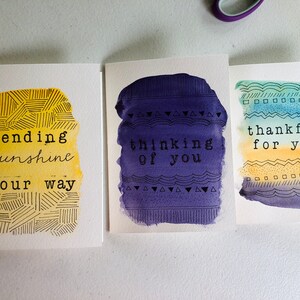 ending
unshine
our way
thinking
of you
thankf
for y